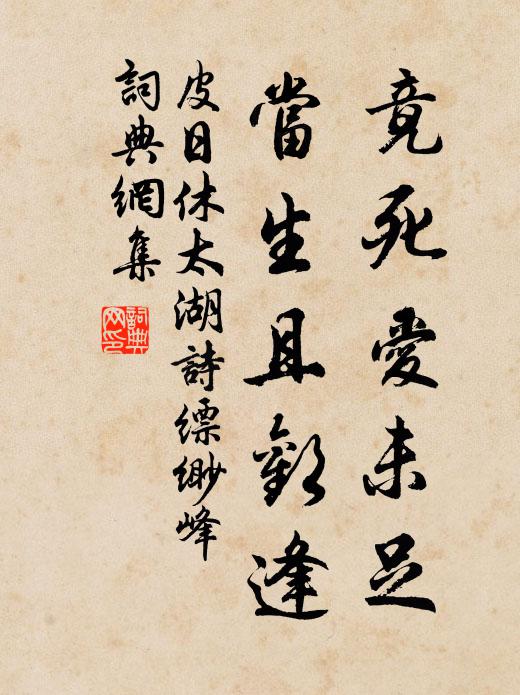 竟死愛未足
當生且歡逢
皮日休太湖詩縹緲峰
詞典網集
詞典网印